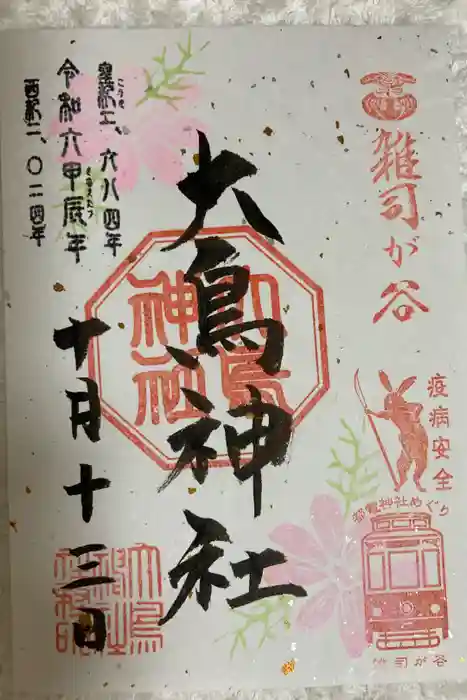 雑司が谷
疫病安全
都電神社めぐり
雑司が谷
大鳥神社
大鳥神社
皇紀二、六八四年
こうき
令和六甲辰年
きのえたつ
西暦二、〇二四年
十月十三日